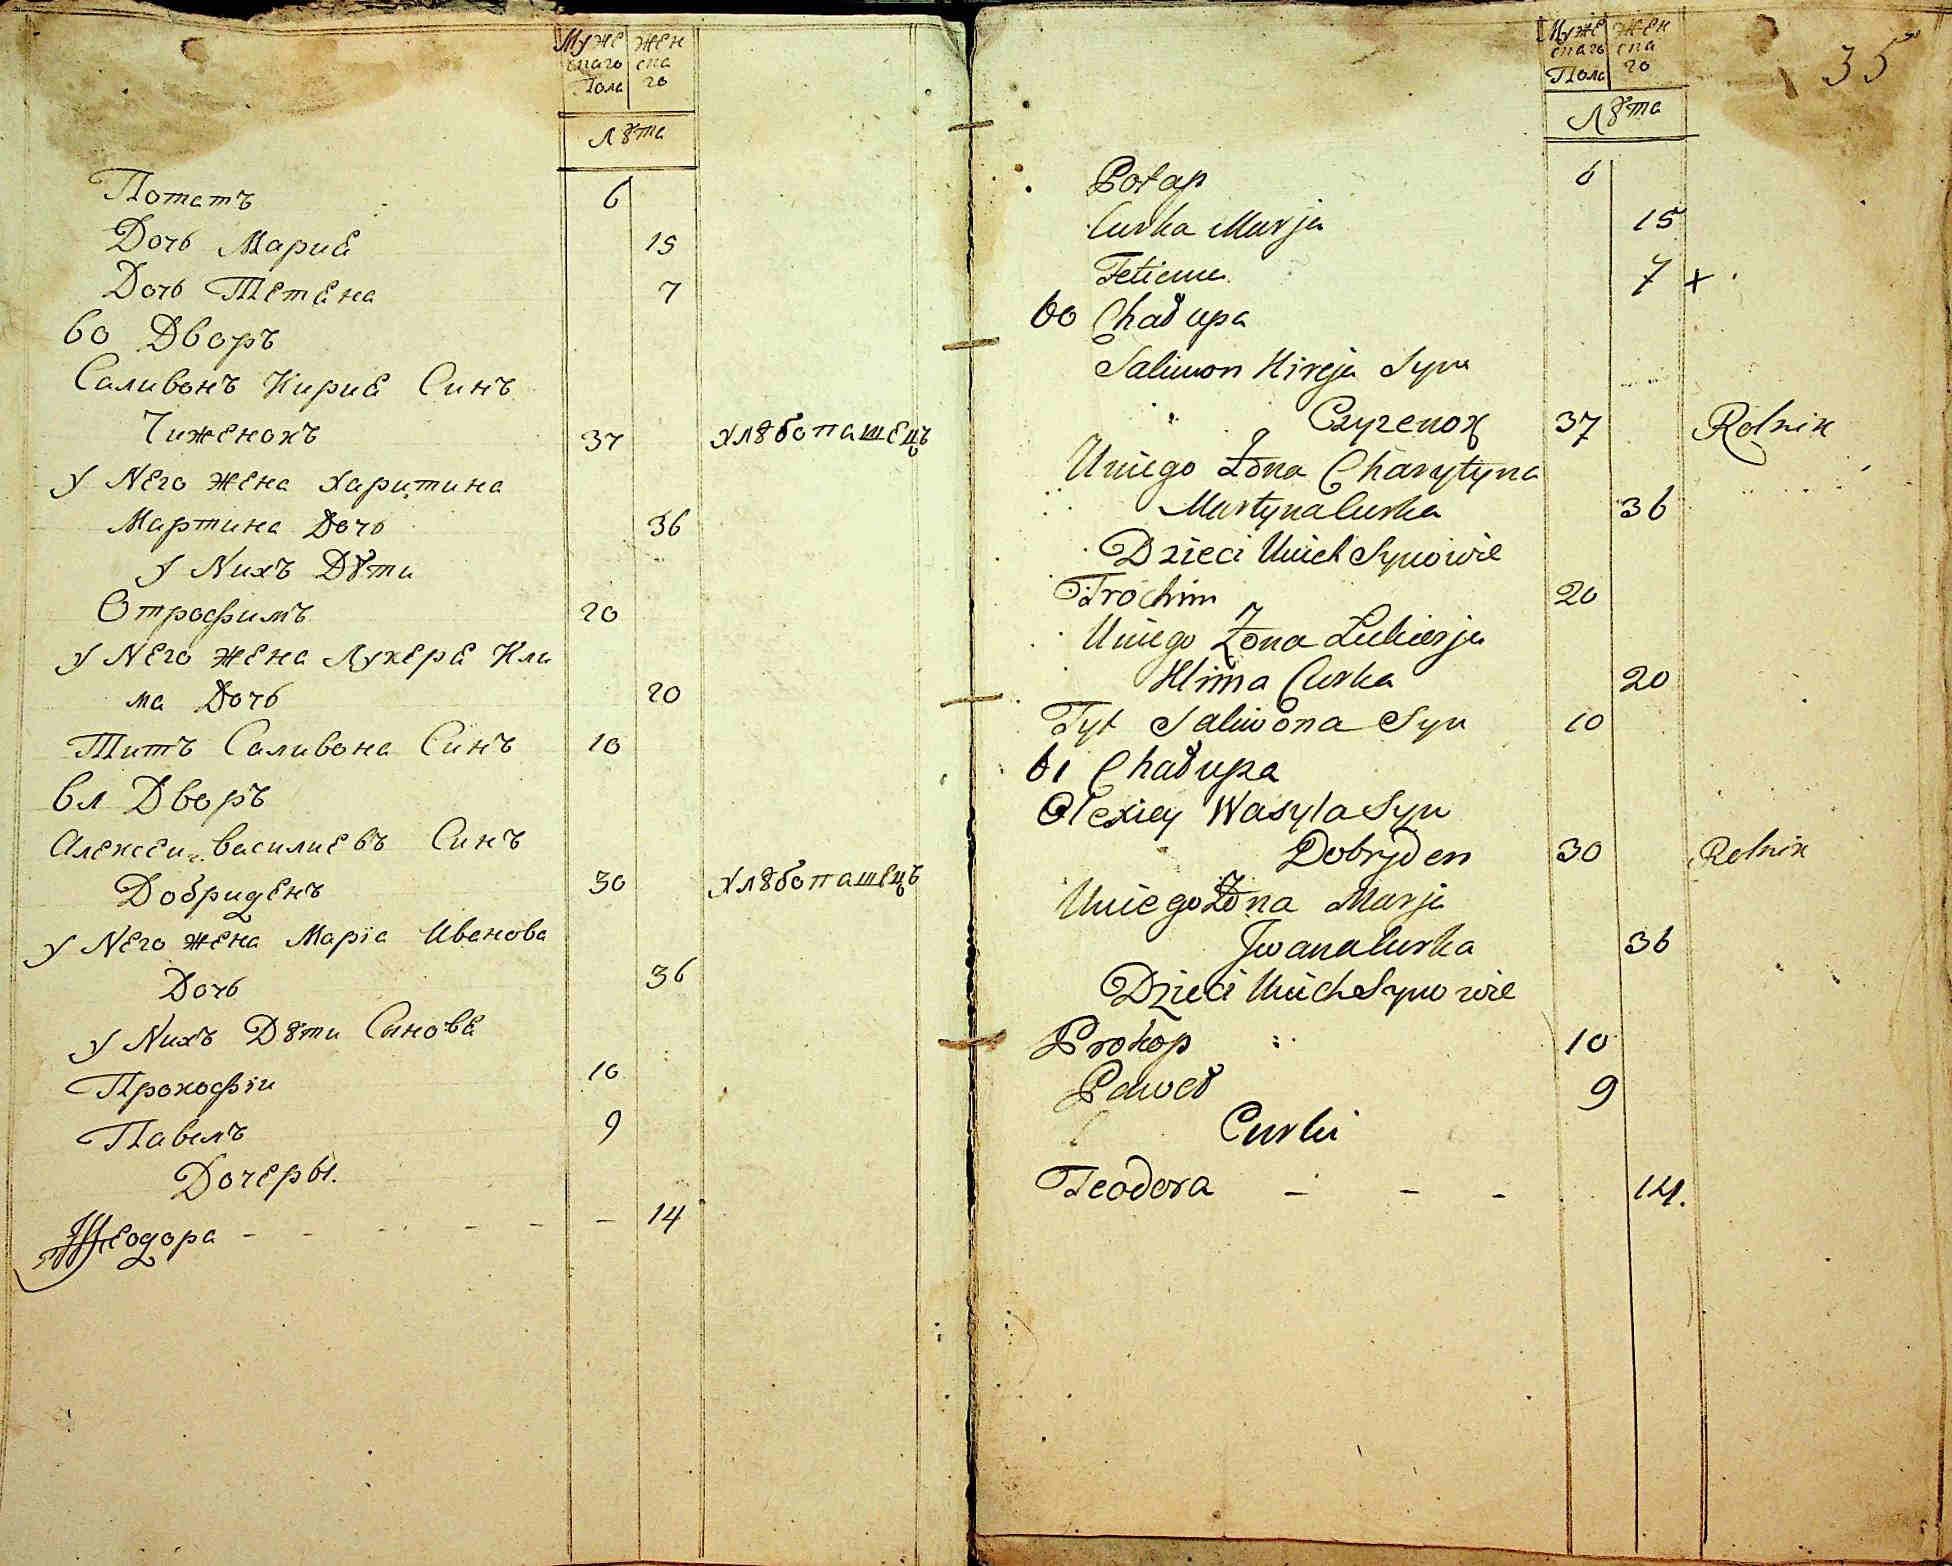 Муже жен
скаго ска
Пола го
Лѣта
Потапъ 6
Дочь Мариа 15
Дочь Тетяна 7
60 Дворъ
Саливонъ Кириа Синъ
Чиженокъ 37 хлѣбопашецъ
У Него жена Харитина
Мартина Дочь 36
У Нихъ Дѣти
Отрофимъ 20
У Него жена Лукера Кли
ма Дочь 20
Титъ Саливона Синъ 10
61 Дворъ
Алексеи Василиевъ Синъ
Добриденъ 30 хлѣбопашецъ
У Него жена Маріа Иванова
Дочь 36
У Нихъ Дѣти Синова
Прокофіи 10
Павелъ 9
Дочеры.
Теодора - - - - - - 14
35
Муже жен
скаго ска
Пола го
Лѣта
Potap 6
Curka Marja 15
Teticnu 7 x
60 Chałupa
Saliwon Kireja Syn
Czyzenok 37 Rolnik
Uniego Żona Charytyna
Martyna Curka 36
Dzieci Unich Synowie
Trochim 20
Uniego Żona Lukierja
Klima Curka 20
Tyt Saliwona Syn 10
61 Chałupa
Olexiey Wasyla Syn
Dobryden 30 Rolnik
Uniego Żona Marja
Jwana Curka 36
Dzieci Unich Synowie
Prokop 10
Paweł 9
Curki
Teodora - - - 14.